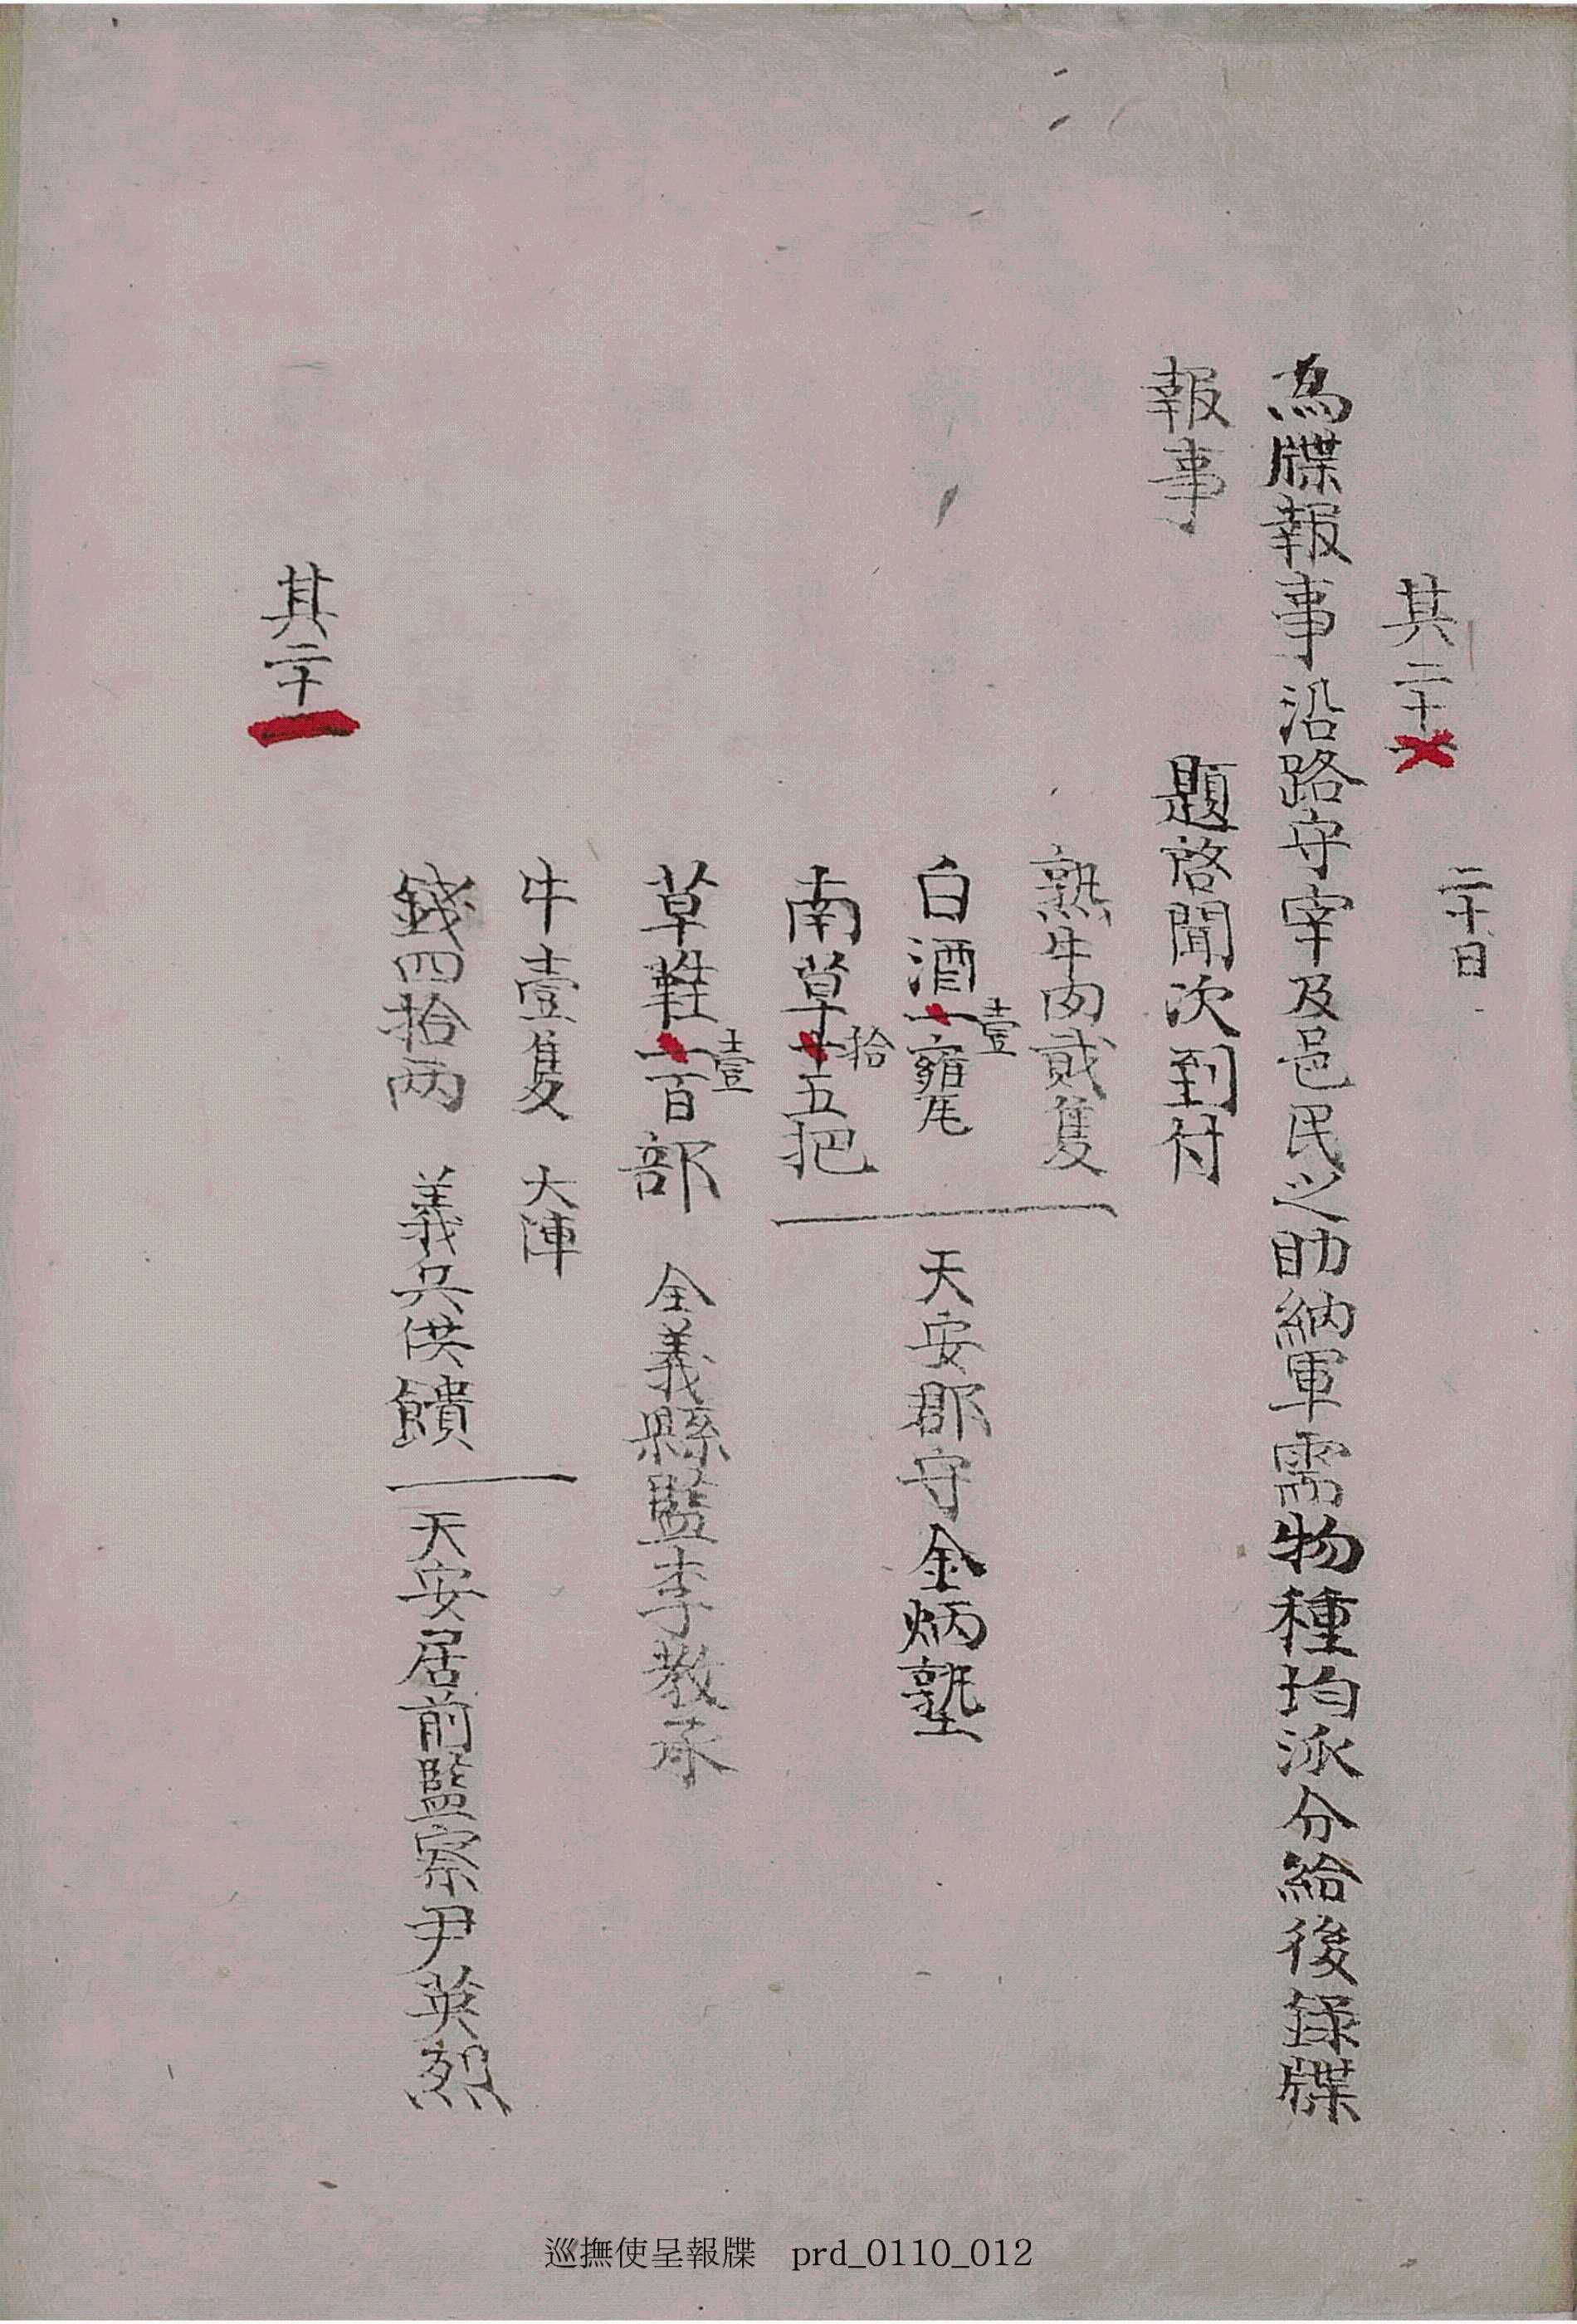 二十日
其二十一
為牒報事沿路守宰及邑民之助納軍需物種均派分給後錄牒
報事
題啓聞次到付
熟牛肉貳隻
白酒一壹甕
南草十拾五把
天安郡守金炳塾
草鞋一壹百部 全義縣監李敎承
牛壹隻 大陣
錢四拾兩 義兵供饋
天安居前監察尹英烈
其二十一
巡撫使呈報牒 prd_0110_012